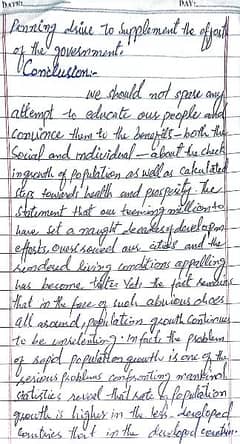 DATE: DAY:
Penning drive to supplement the effort
of the government.
Conclusion:-
We should not spare any
attempt to educate our people and
convince them to the benefits - both the
social and individual - about the check
in growth of population as well as calculated
steps towards health and prosperity. The
statement that our teeming million to
have set a naught decades of develop on
efforts, our cities and the
rendered living conditions appalling
has become the fact remains
that in the face of such abvious
all around, population growth continues
to be unrelenting. Infact the problem
of rapid population growth is one of the
serious problems confronting mankind
statistics reveal that rate of population
growth is higher in the less developed
countries that in the developed countries.